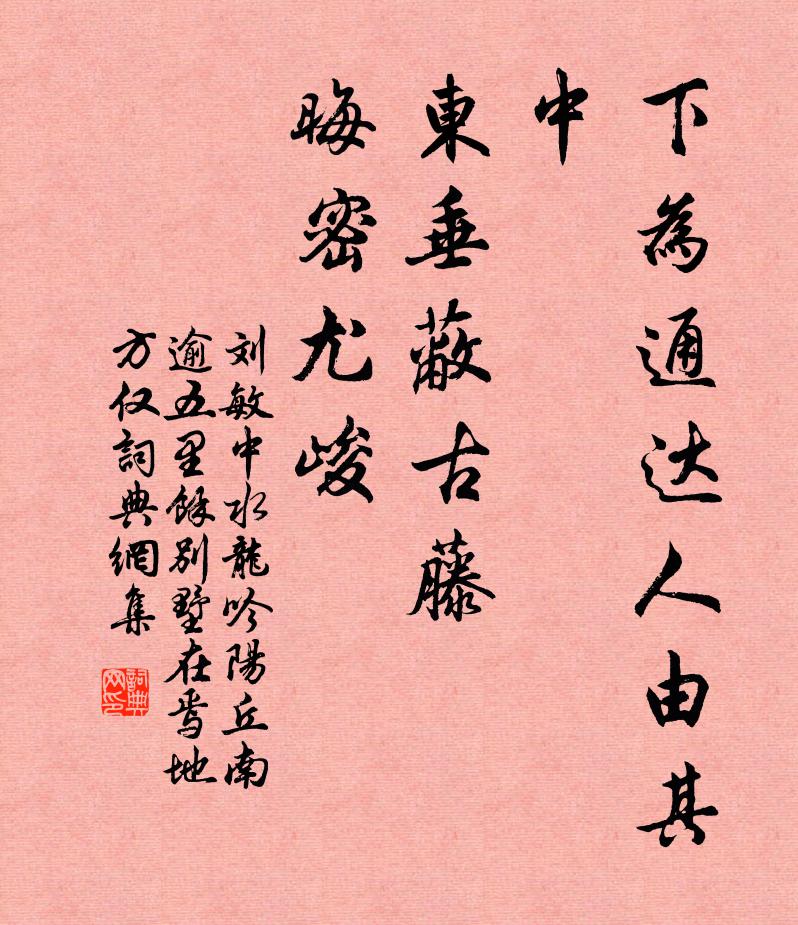 下為通達人由其
中
東垂蔽古藤
晦密尤峻
刘敏中水龍吟陽丘南
逾五里餘别墅在焉地
方仅詞典網集
詞典网印